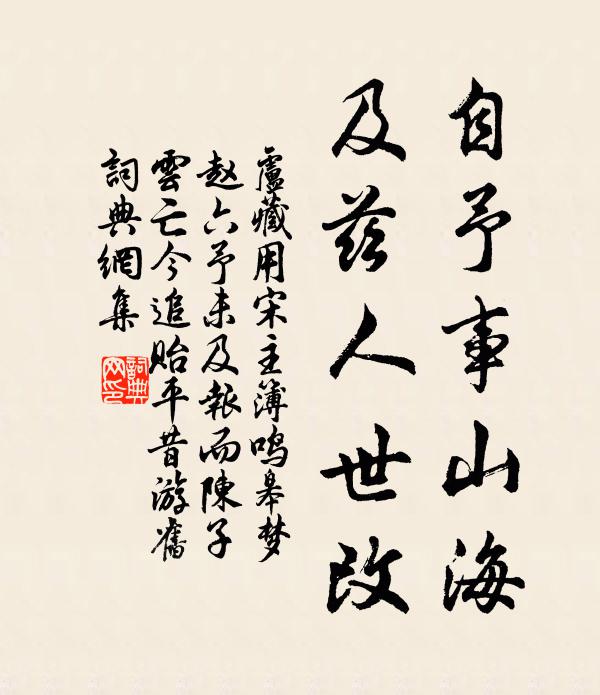 自予事山海
及茲人世改
盧藏用宋主簿鳴皋梦
赵六予未及報而陳子
雲亡今追貽平昔游舊
詞典網集
詞典
网印